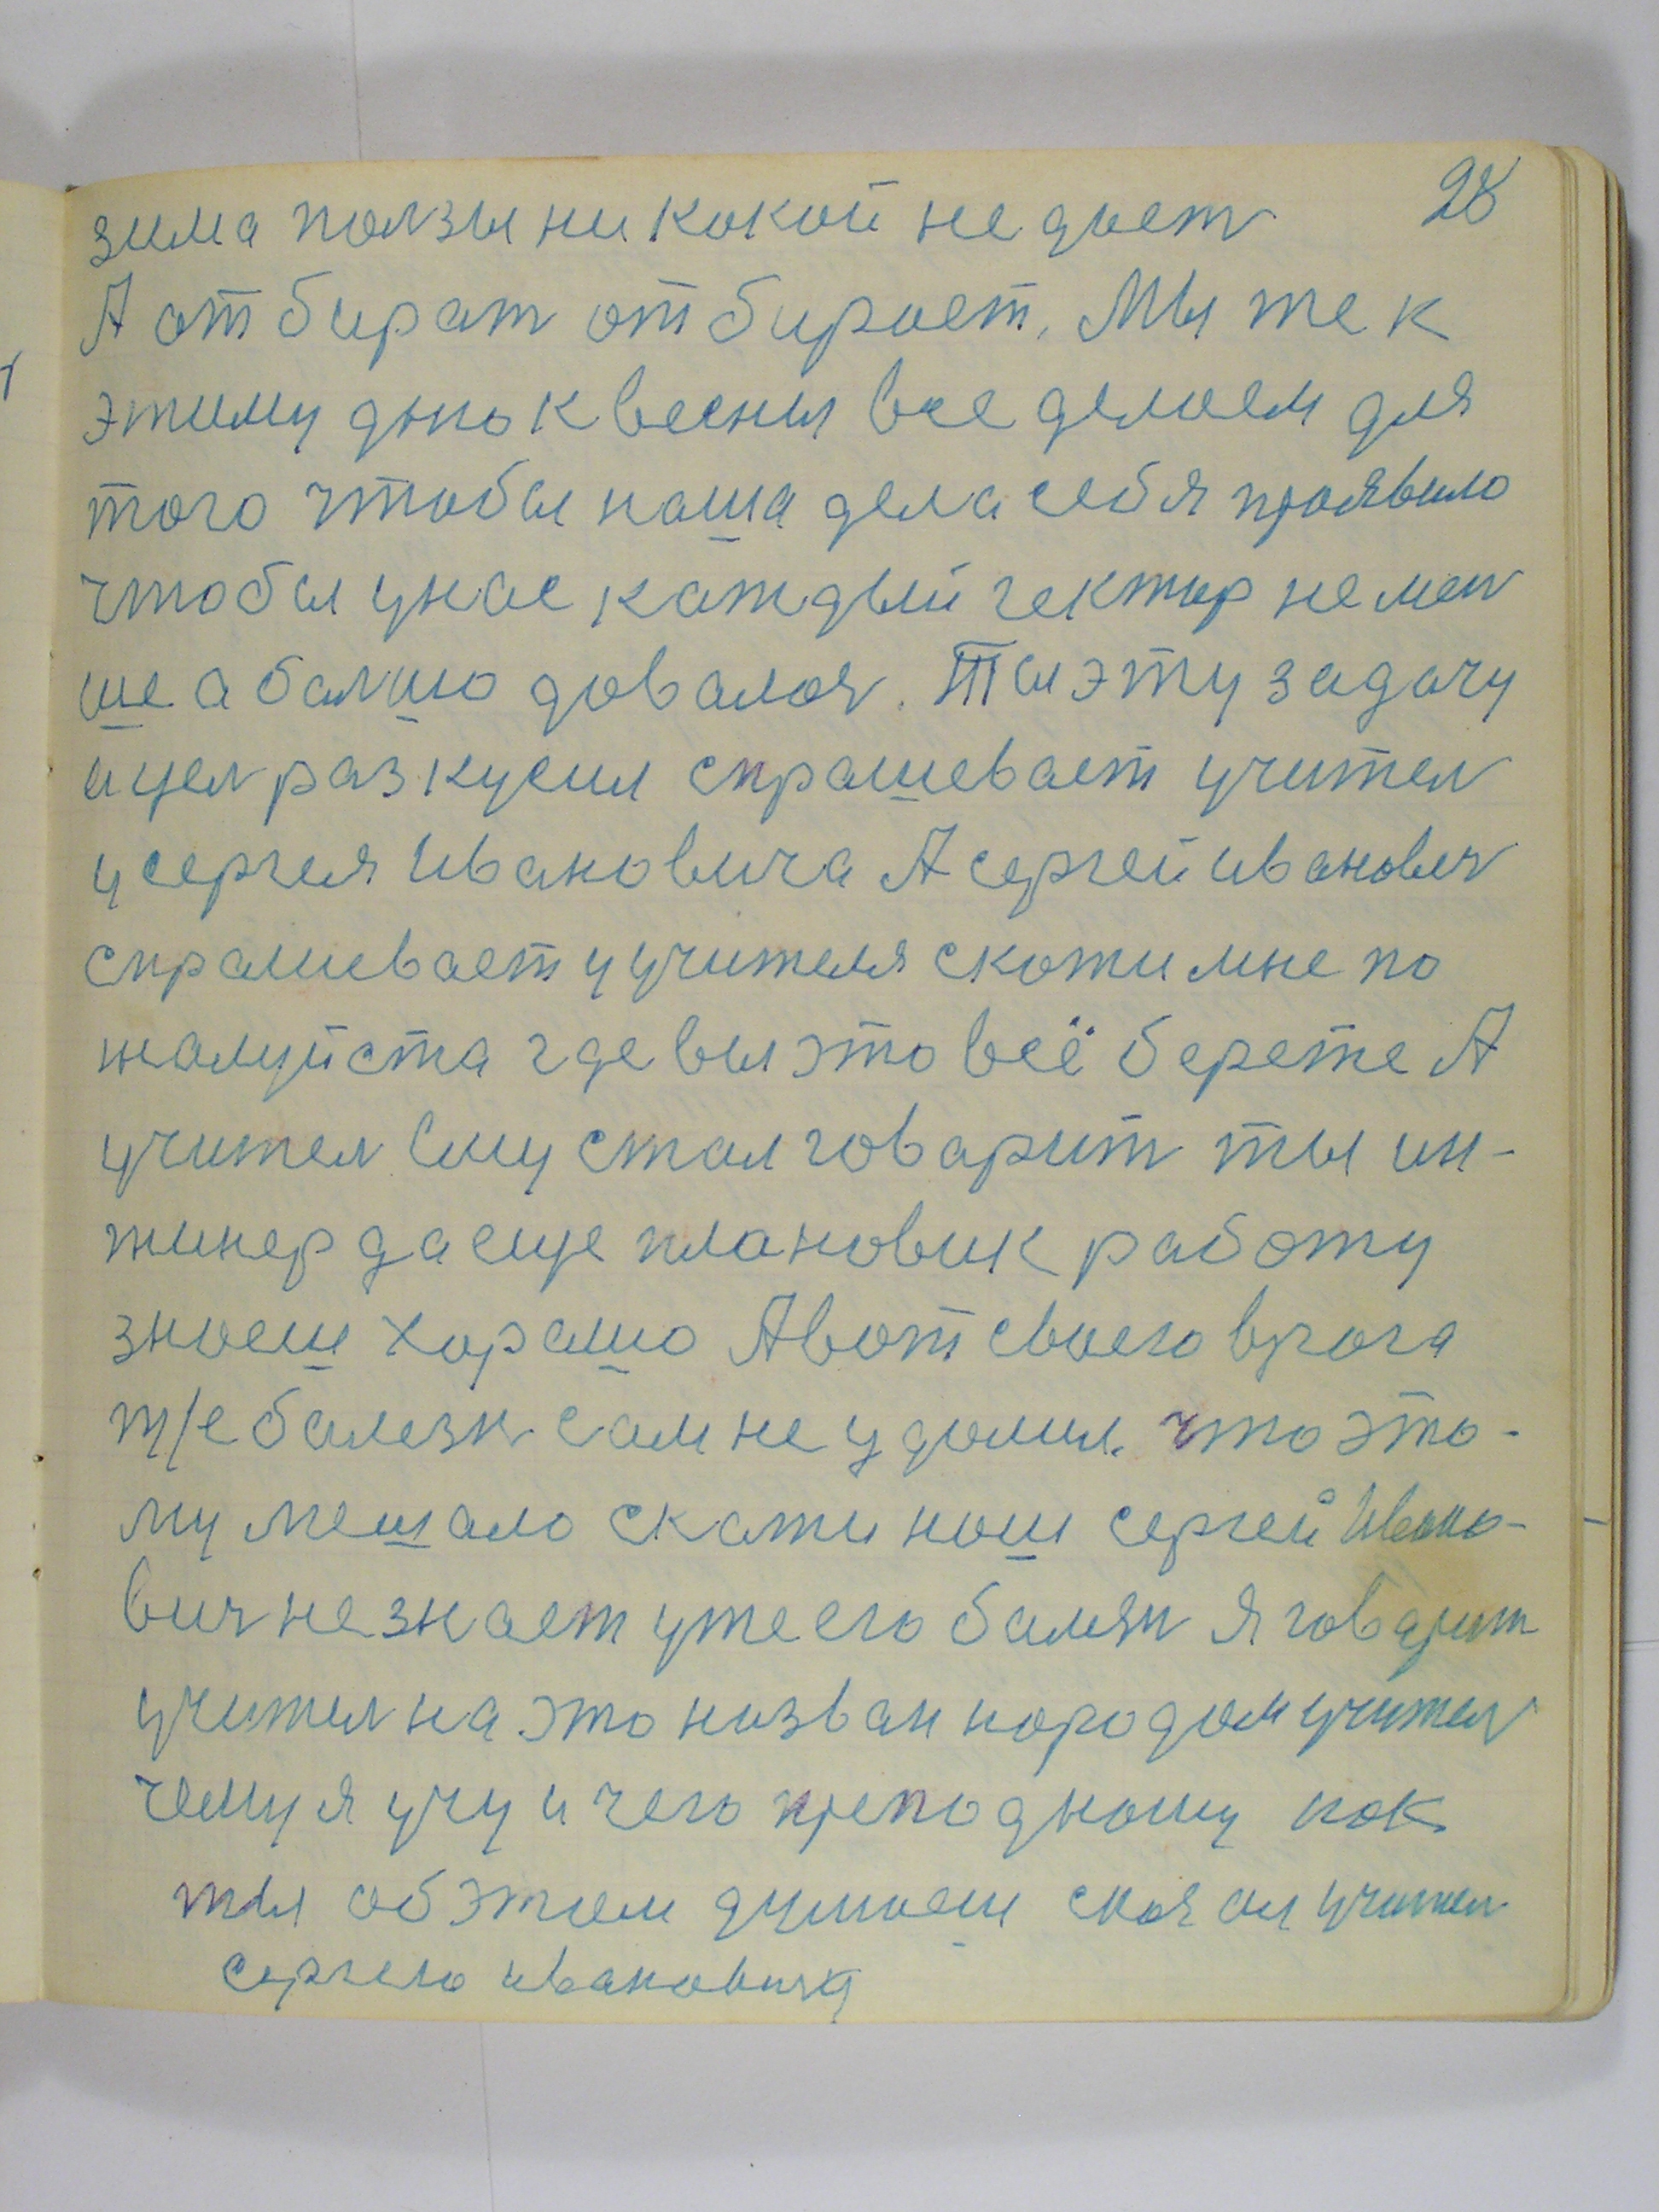 28
зима ползы ни какой не дает
А отбират отбирает. Мы же к
этиму дню к весны все делаем для
того чтобы наша дела себя проявило
чтобы у нас каждый гектар не мен
ше а балшо давался. Ты эту задачу
и цел разкусил спрашевает учител
у сергея Ивановича А сергей иванович
спрашевает у учителя скажи мне по
жалуйста где вы это всё берете А
учител ему стал говарит ты ин-
жинер да еще плановик работу
знаеш харашо А вот своего врага
т/е балезн сам не удалил. что это-
му мешало скажи наш сергей Ивано-
вич не знает уже его балязн Я говарит
учител на это назван народам учител
чему я учу и чего преподношу как
ты об этом думаеш сказал учител
сергею ивановичу